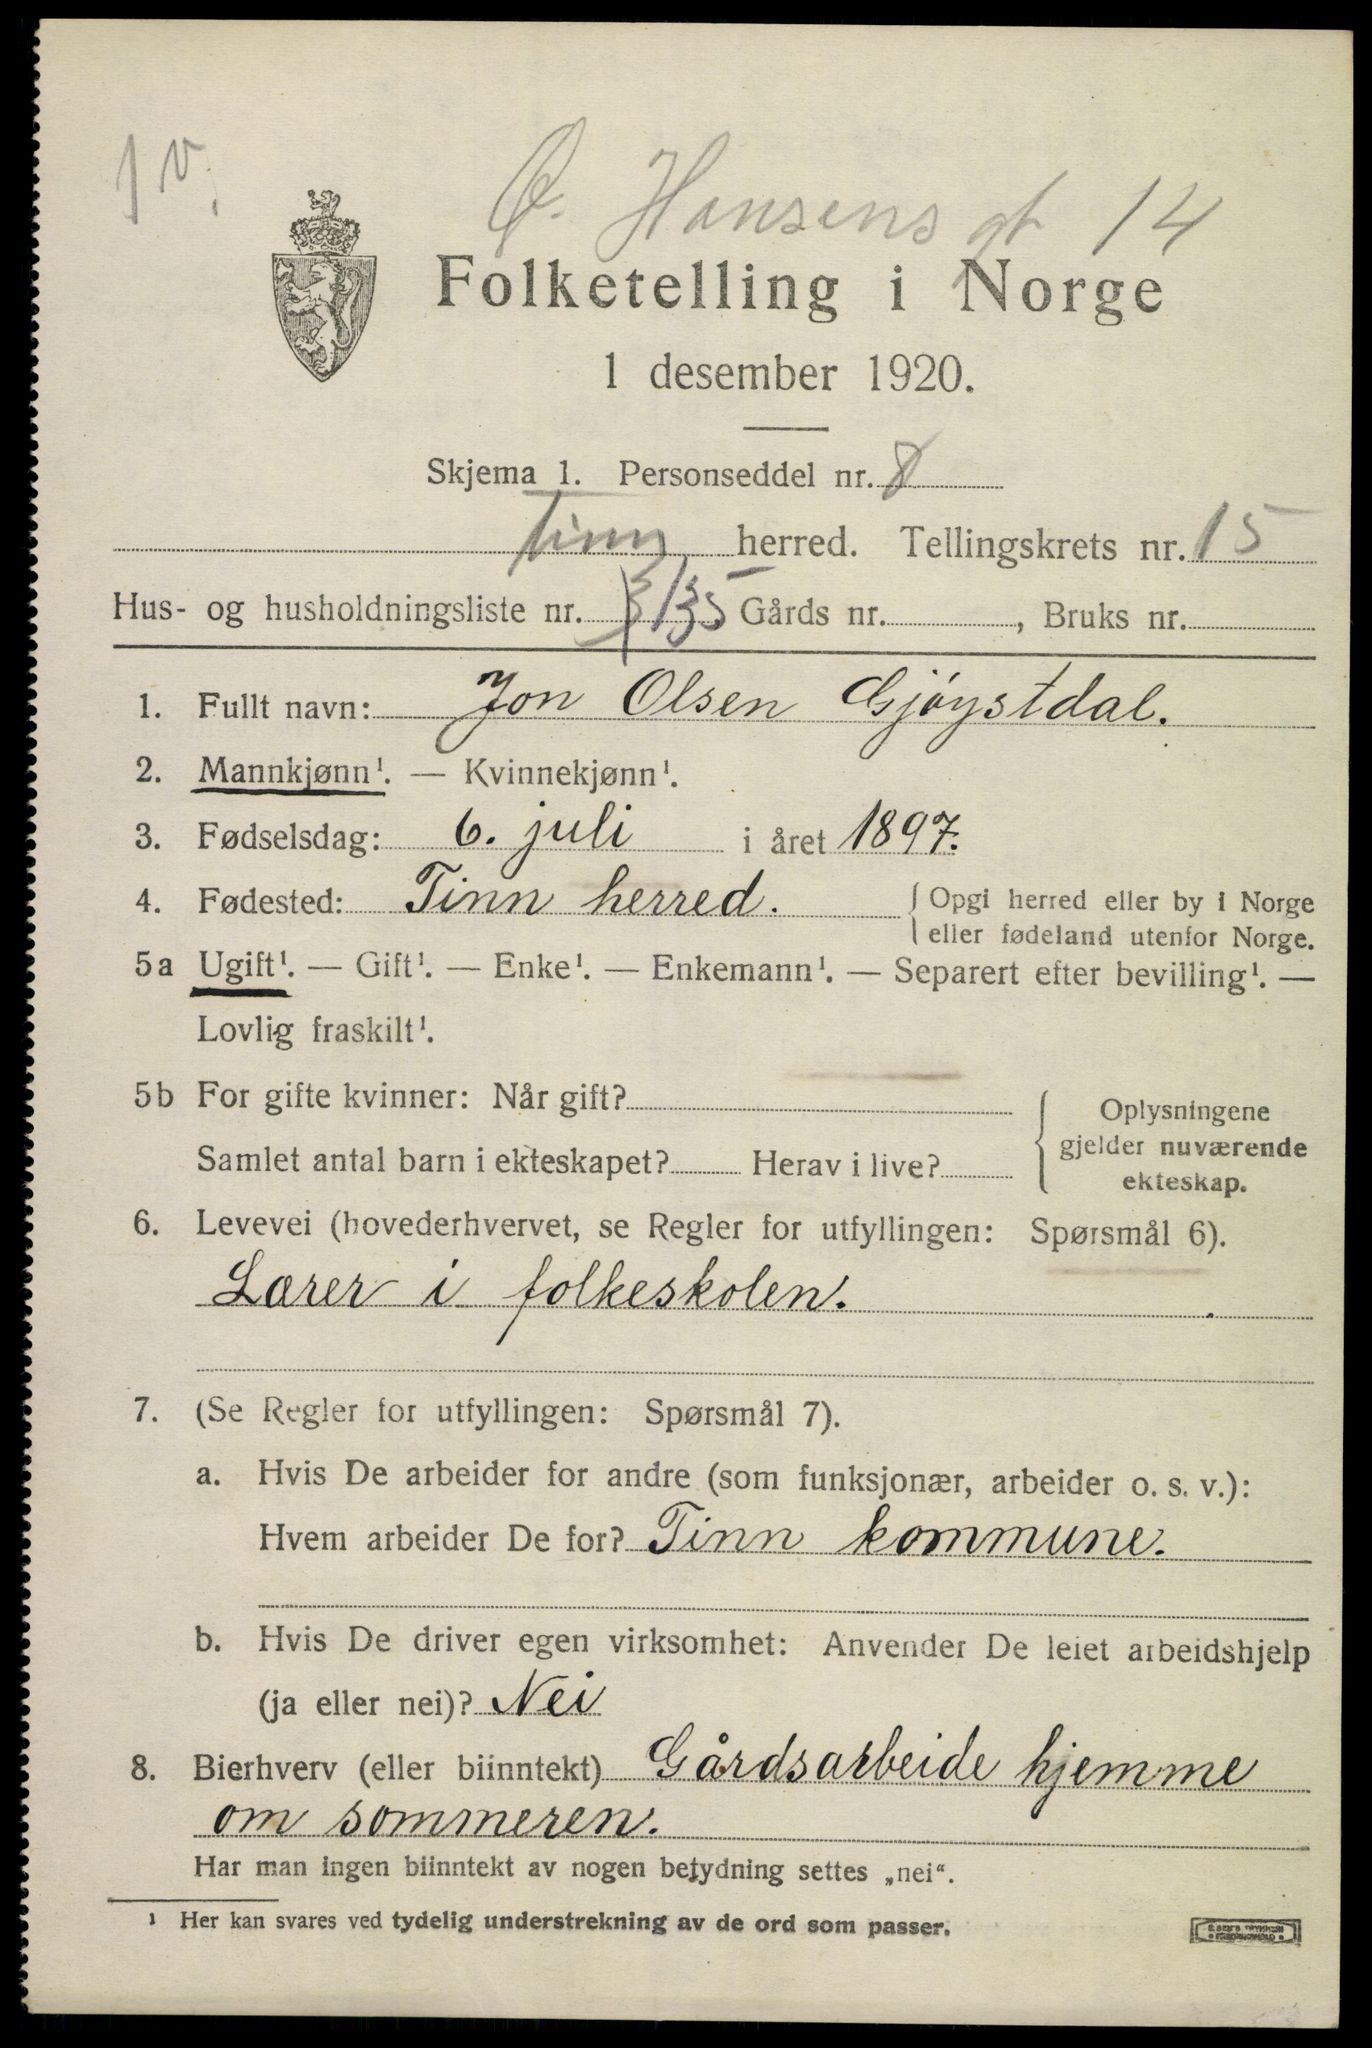 1 v.
Ø. Hansens gt 14
Folketelling i Norge
1 desember 1920.
Skjema 1. Personseddel nr. 8
Tinn herred. Tellingskrets nr. 15
Hus- og husholdningsliste nr. 35 Gårds nr. , Bruks nr.
1. Fullt navn: Jon Olsen Gjøystdal.
2. Mannkjønn¹. — Kvinnekjønn¹.
3. Fødselsdag: 6. juli i året 1897.
4. Fødested: Tinn herred. { Opgi herred eller by i Norge
eller fødeland utenfor Norge.
5a Ugift¹. — Gift¹. — Enke¹. — Enkemann¹. — Separert efter bevilling¹. —
Lovlig fraskilt¹.
5b For gifte kvinner: Når gift?
Samlet antal barn i ekteskapet? Herav i live?
{ Oplysningene
gjelder nuværende
ekteskap.
6. Levevei (hovederhvervet, se Regler for utfyllingen: Spørsmål 6).
Lærer i folkeskolen.
7. (Se Regler for utfyllingen: Spørsmål 7).
a. Hvis De arbeider for andre (som funksjonær, arbeider o. s. v.):
Hvem arbeider De for? Tinn kommune.
b. Hvis De driver egen virksomhet: Anvender De leiet arbeidshjelp
(ja eller nei)? Nei
8. Bierhverv (eller biinntekt) Gårdsarbeide hjemme
om sommeren.
Har man ingen biinntekt av nogen betydning settes „nei“.
¹ Her kan svares ved tydelig understrekning av de ord som passer.